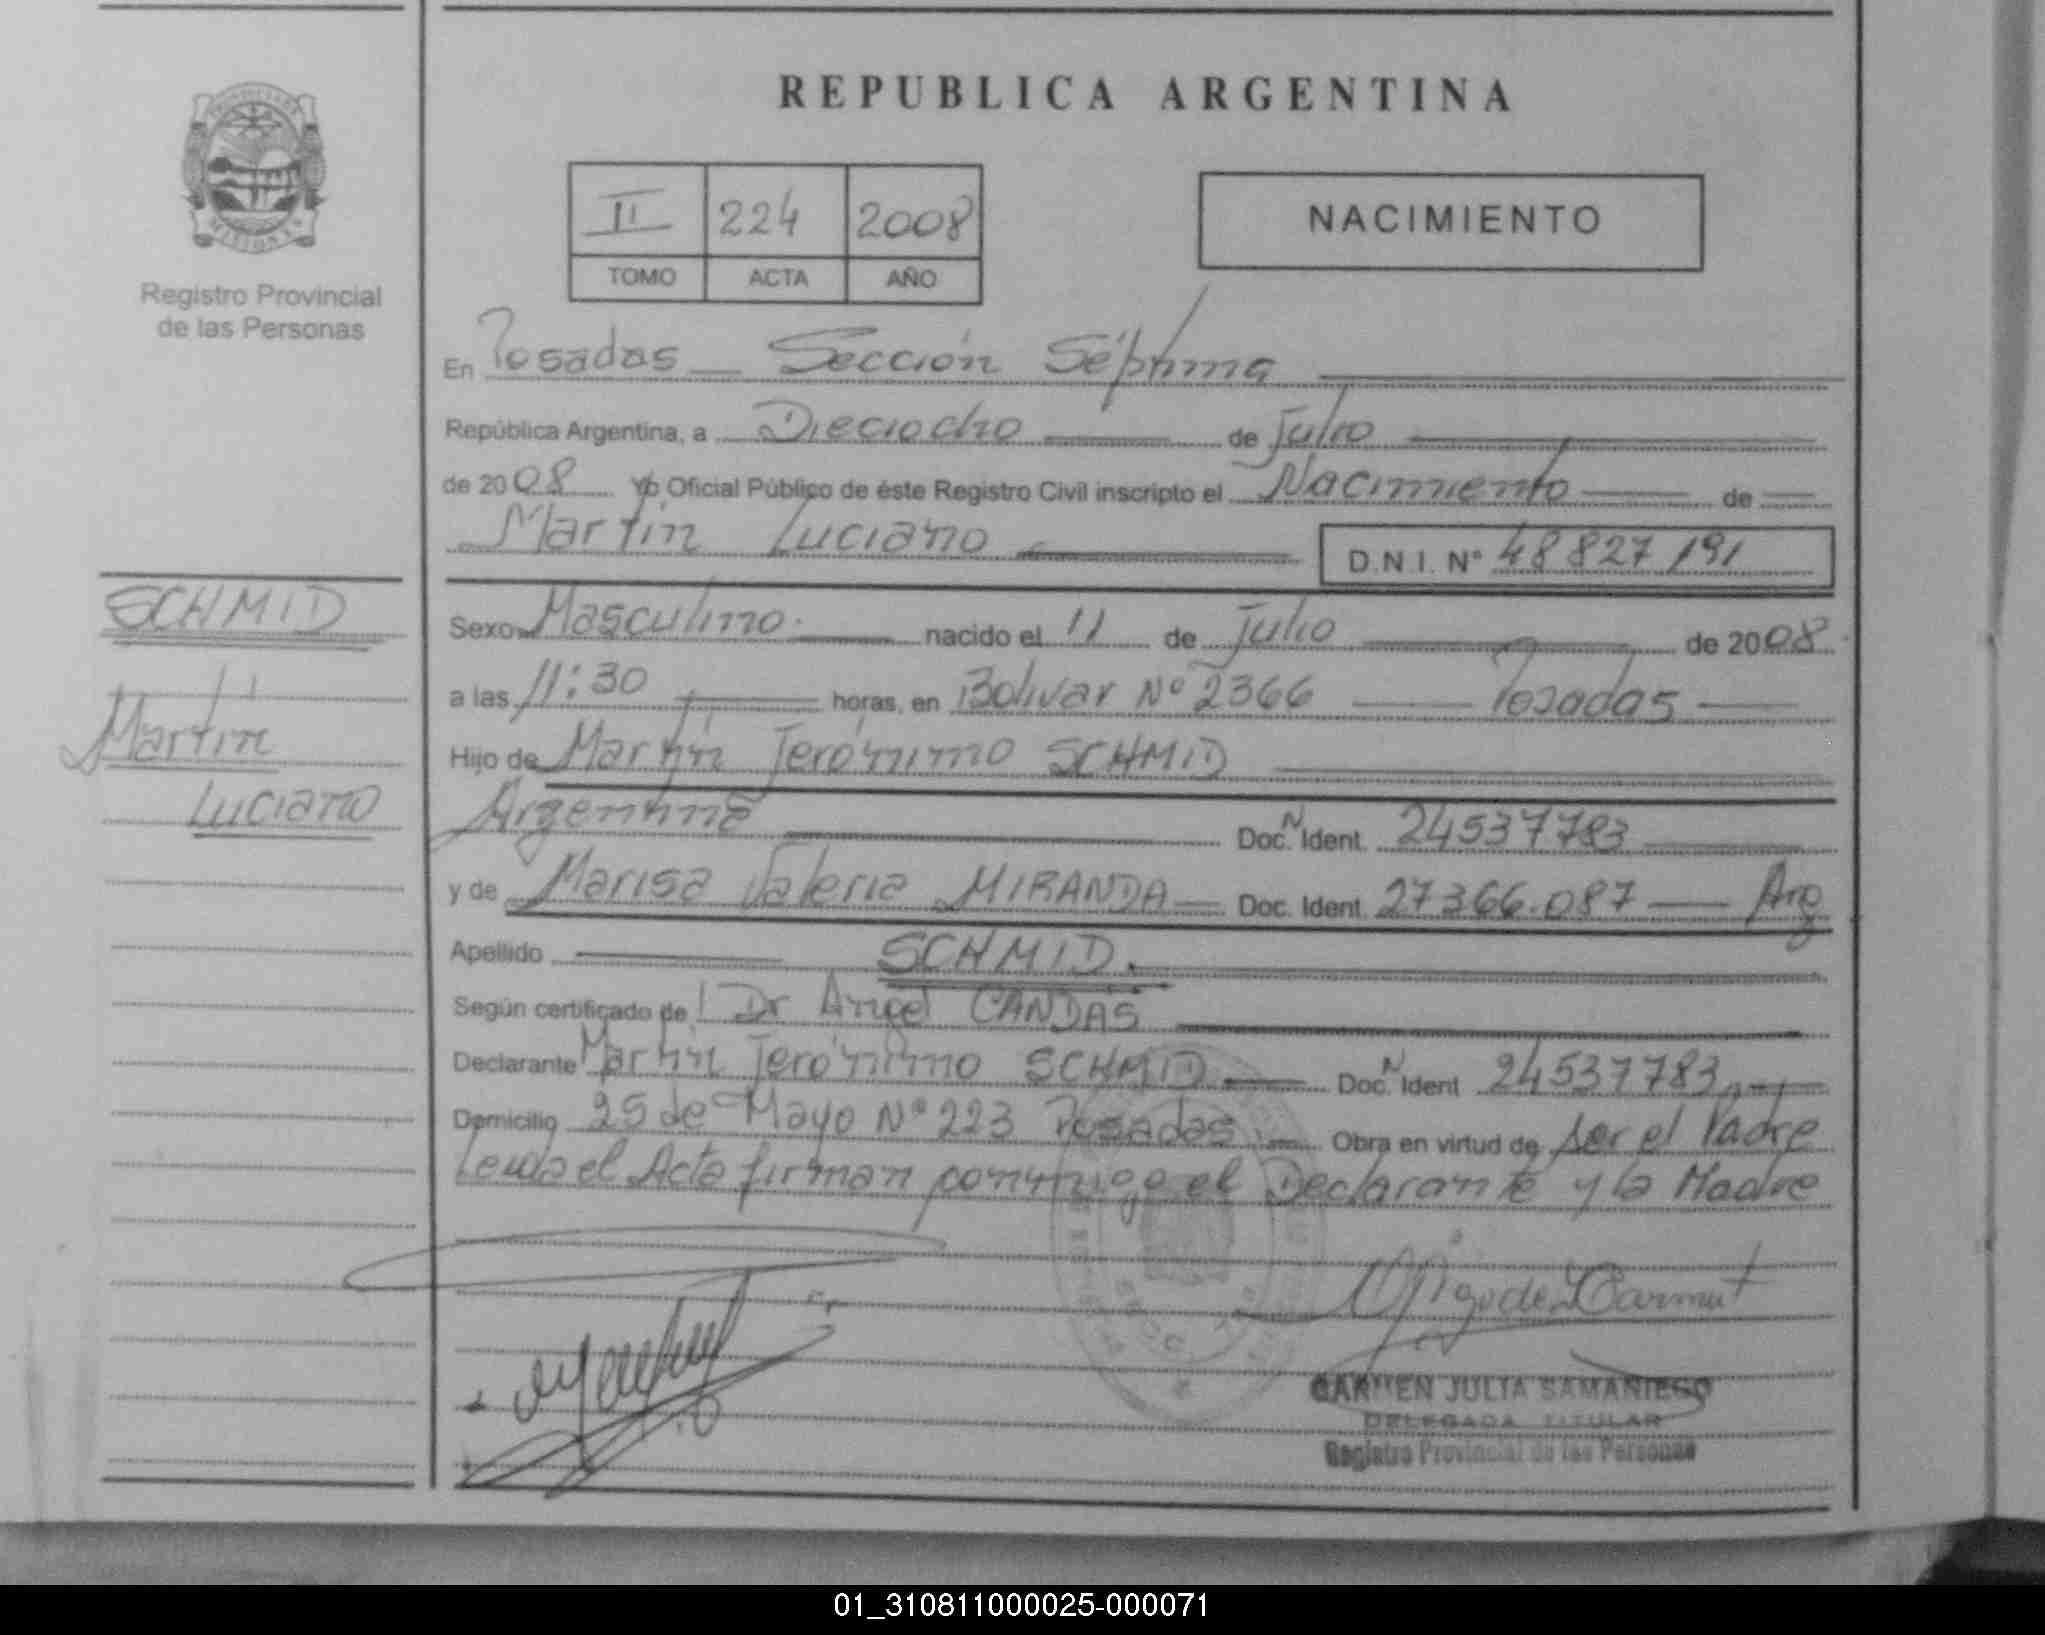 REPUBLICA ARGENTINA
PROVINCIA DE MISIONES
Registro Provincial
de las Personas
II 224 2008
TOMO ACTA AÑO
NACIMIENTO
En Posadas — Sección Séptima
República Argentina, a Dieciocho de Julio
de 2008 Yo Oficial Público de éste Registro Civil inscripto el Nacimiento de
Martín Luciano D.N.I. Nº 48827191
SCHMID
Martín
Luciano
Sexo Masculino nacido el 11 de Julio de 2008
a las 11:30 horas, en Bolivar Nº 2366 — Posadas —
Hijo de Martín Jerónimo SCHMID
Argentina Doc. N Ident. 24537783
y de Marisa Valeria MIRANDA — Doc. Ident. 27366.087 — Arg
Apellido SCHMID.
Según certificado de Dr Angel CANDAS
Declarante Martín Jerónimo SCHMID Doc. N Ident 24537783
Domicilio 25 de Mayo Nº 223 Posadas Obra en virtud de ser el Padre
Leída el Acta firman conmigo el Declarante y la Madre
CARMEN JULIA SAMANIEGO
DELEGADA TITULAR
Registro Provincial de las Personas
01_310811000025-000071